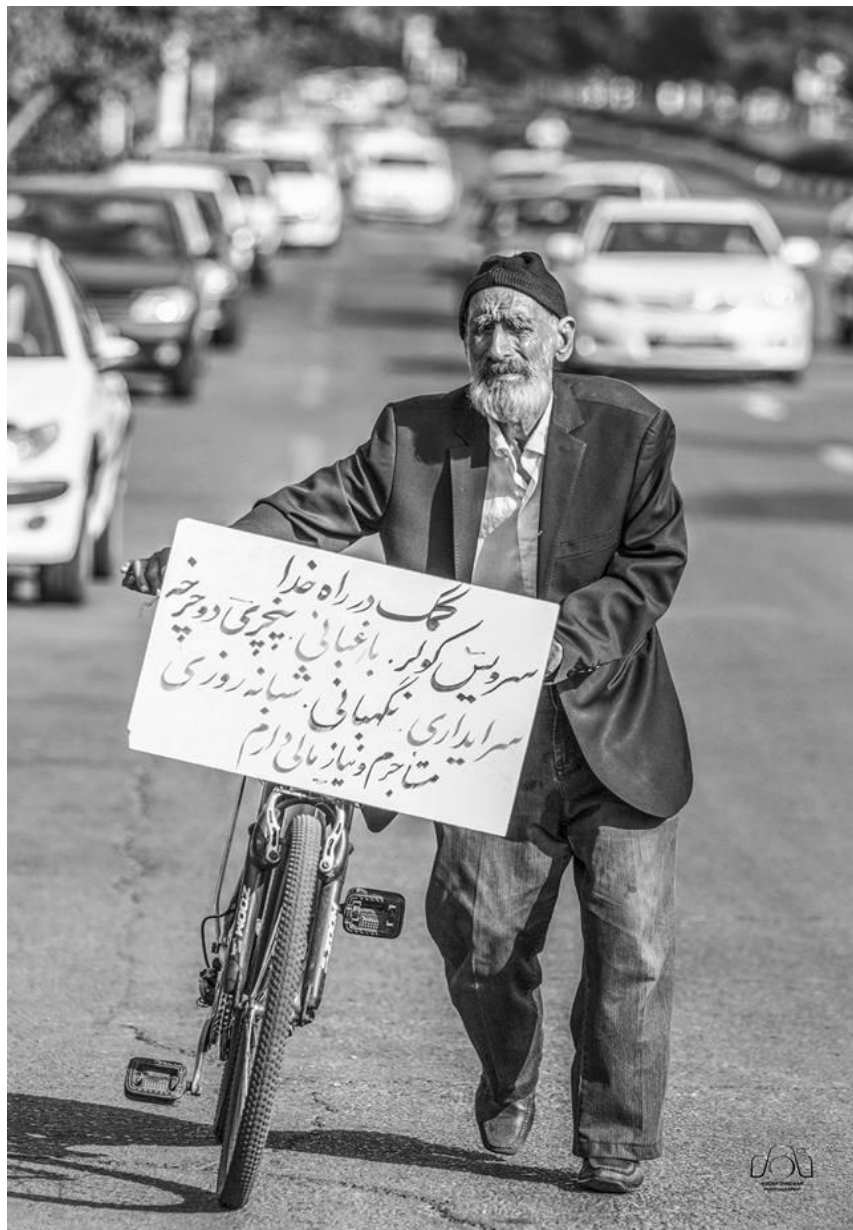 کمک در راه خدا
سرویس کولر. باغبانی. پنچری دوچرخه
سرایداری. نگهبانی. شبانه روزی
مستاجرم و نیاز مالی دارم
ZOOM